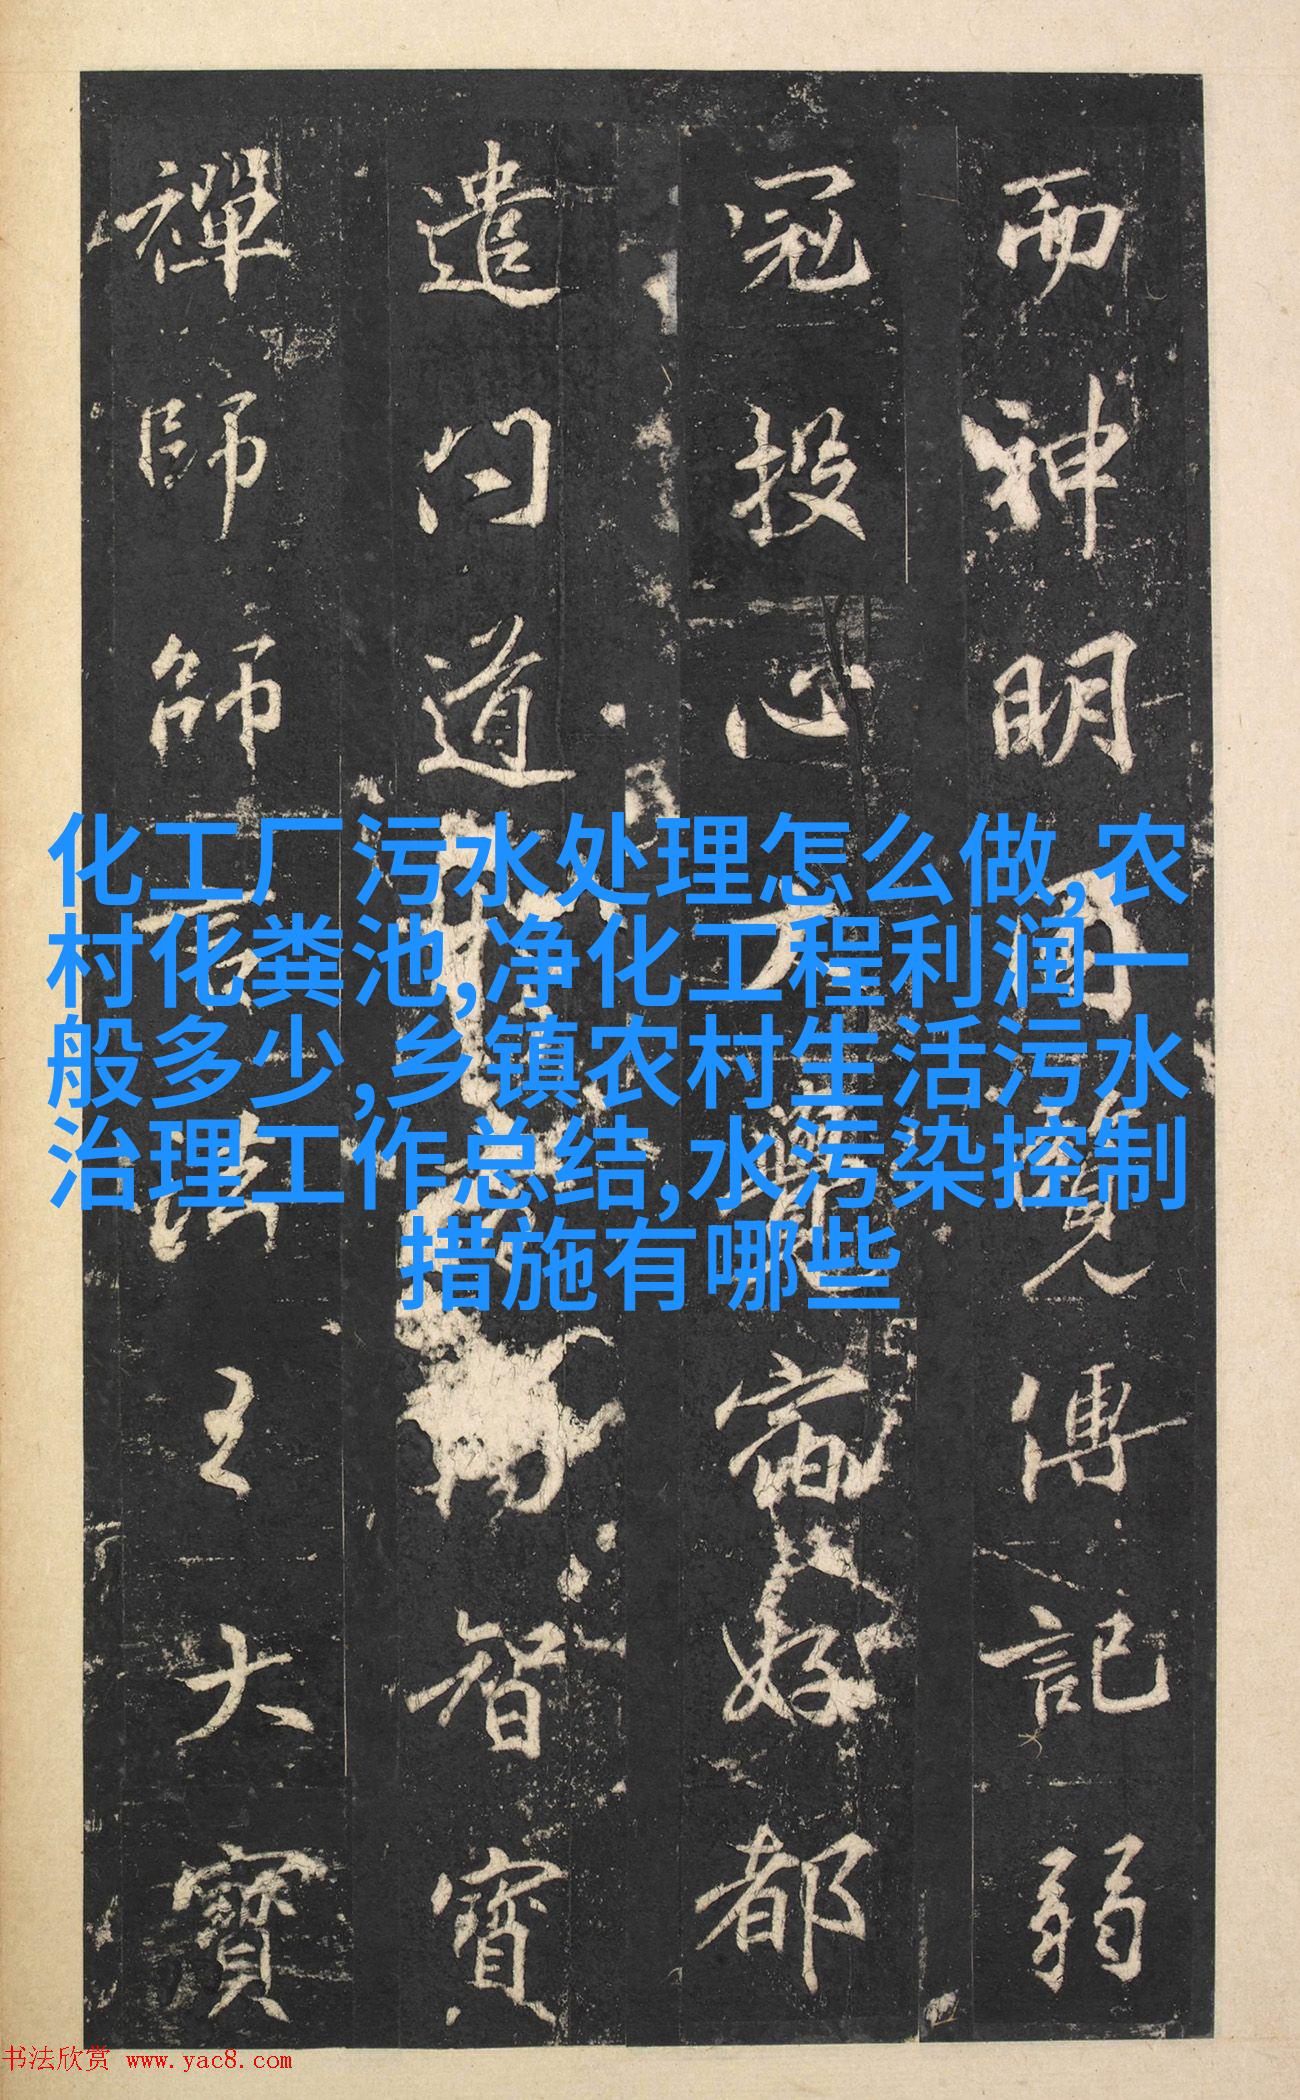 而神明覽傳記弱
冠投心宿好都
遣問道智寶
禪師師言法王大寶
化工厂污水处理怎么做,农
村化粪池,净化工程利润一
般多少,乡镇农村生活污水
治理工作总结,水污染控制
措施有哪些
书法欣赏 www.yac8.com